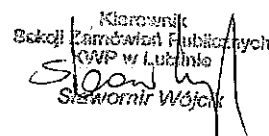 Kierownik
Sekcji Zamówień Publicznych
KWP w Lublinie
Sławomir Wójcik